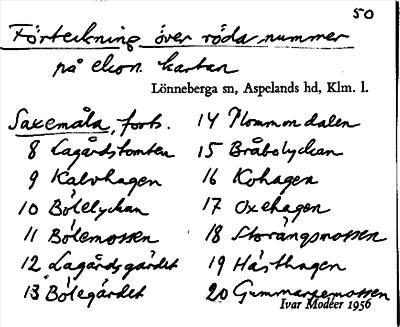 50
Förteckning över röda nummer
på ekon. kartan
Lönneberga sn, Aspelands hd, Klm. l.
Saxemåla, forts.
8 Lagårdstomten
9 Kalvhagen
10 Bötelyckan
11 Bötemossen
12 Lagårdsgärdet
13 Bötegärdet
14 Nommondalen
15 Bråbolyckan
16 Kohagen
17 Oxehagen
18 Storängsmossen
19 Hästhagen
20 Gummaregemossen
Ivar Modéer 1956